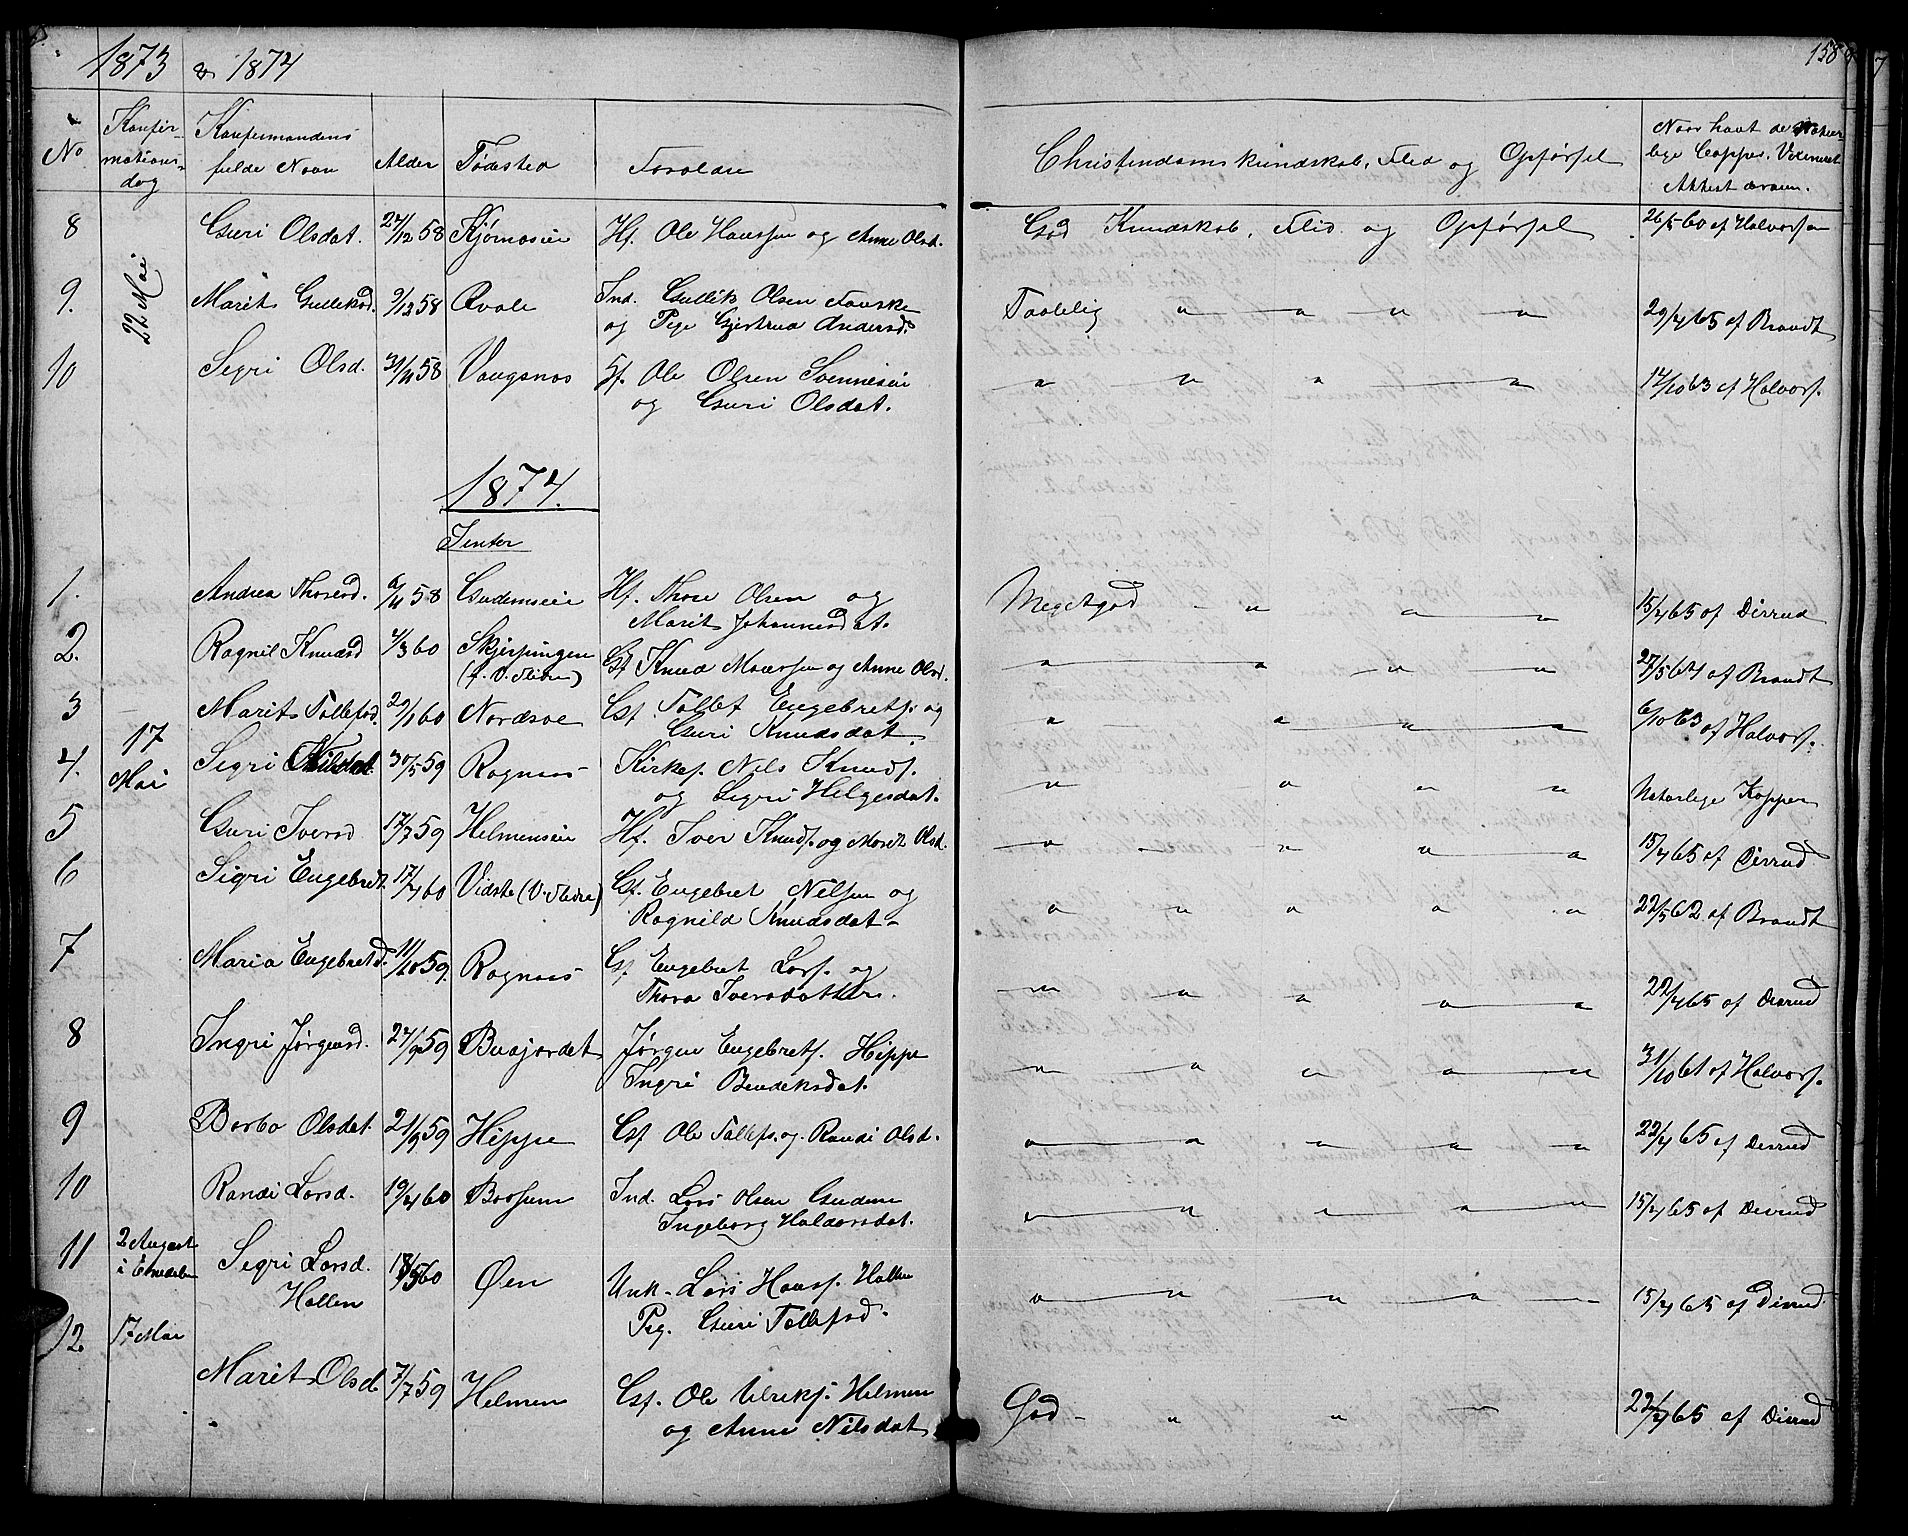 1873 & 1874
158
No
Konfirmationsdag
Konfirmandens fulde Navn
Alder
Fødested
Forældre
Christendoms kundskab, Flid og Opførsel
Naar havt de naturlige Copper, Vaccineret Attest derom.
8 Guri Olsdat. 27/12 58 Hf. Ole Hanssen og Anne Olsd. God Kundskab, Flid og Opførsel 26/5 60 af Halvorsen
22 Mai
9. Marit Gulleksd. 9/12 58 Qvale Ind. Gullik Olsen Fauske
og Pige Gjertrud Andersd. Taalelig " " " " 29/4 65 af Brandt
10 Sigri Olsd. 31/11 58 Vangsnes Hf. Ole Olsen
og Guri Olsdat. " " " " 14/10 63 af Halvors.
1874.
Jenter
1. Andrea Thoresd. 6/11 58 Gudemseie Hf. Thore Olsen og
Marit Johannesdat. Meget god " " " 15/4 65 af Disrud
2. Ragnil Knudsd 4/3 60 Skjerpingen
(f. V. Slidre) Gf Knud Monssen og Anne Olsd. " " " " 27/5 64 af Brandt
3 Marit Tollefsd. 20/1 60 Nordsve Gf. Tollef Engebrets. og
Guri Knudsdat. " " " " 6/10 63 af Halvors.
17
Mai
4. Sigri Nilsdat. 30/5 59 Rognaas Kirkes. Nils Knuds.
og Sigri Helgesdat. " " " " Naturlige Kopper
5 Guri Iversd 17/7 59 Helmenseie Hf. Iver Knuds. og Marit Olsd. " " " " 15/4 65 af Disrud
6 Sigri Engebretd. 17/4 60 Vidste (V. Slidre) Gf. Engebret Nilsen og
Ragnild Knudsdat. " " " " " 22/5 62 af Brandt
7 Maria Engebretd. 11/10 59. Rognaas Gf Engebret Lars. og
Thora Iversdatter. " " " " " 22/4 65 af Disrud
8 Ingri Jørgensd. 27/9 59 Buajordet Jørgen Engebrets. Hippe
Ingri Bendeksdat. " " " " " 31/10 61 af Halvors.
9 Barbo Olsdat. 21/9 59 Hippe Gf Ole Tollefs. og Randi Olsd. " " " " " 22/4 65 af Disrud
10 Randi Larsd. 19/4 60 Ind. Lars Olsen Gudem
Ingeborg Haldorsdat. " " " " " 15/4 65 af Disrud
11 2 August
i Etnedalen Sigri Larsd.
Hallen 18/5 60 Øen Unk. Lars Hans. Hallen
Pig. Guri Tollefsd. " " " " 15/4 65 af Disrud
12. 17 Mai Marit Olsd. 7/7 59 Helmen Gf. Ole Ulriks. Helmen
og Anne Nilsdat God " " " 22/4 65 af Disrud